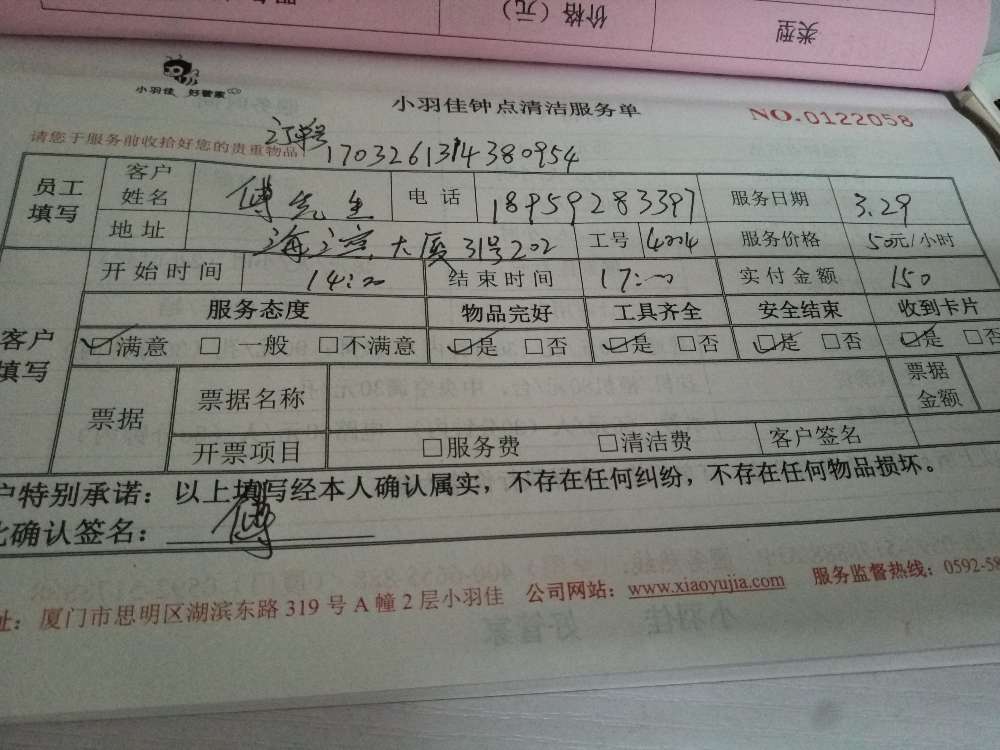 价格（元） 类型
小羽佳 好管家
小羽佳钟点清洁服务单 NO.0122058
请您于服务前收拾好您的贵重物品! 订单号 17032613143 80954
员工填写 客户姓名 傅先生 电话 18959283397 服务日期 3.29
地址 海滨大厦31号202 工号 4004 服务价格 50元/小时
开始时间 14:00 结束时间 17:00 实付金额 150
客户填写 服务态度 物品完好 工具齐全 安全结束 收到卡片
☑满意 □一般 □不满意 ☑是 □否 ☑是 □否 ☑是 □否 ☑是 □否
票据 票据名称 票据金额
开票项目 □服务费 □清洁费 客户签名
户特别承诺：以上填写经本人确认属实，不存在任何纠纷，不存在任何物品损坏。
此确认签名： 傅
址：厦门市思明区湖滨东路 319 号 A 幢 2 层小羽佳 公司网站：www.xiaoyujia.com 服务监督热线：0592-58